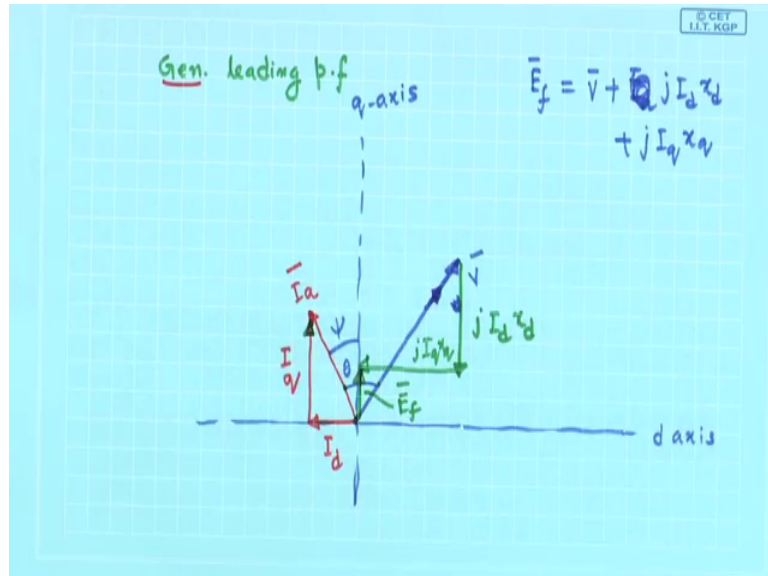 © CET
I.I.T. KGP
Gen. leading p.f
q-axis
Ēf = v̄ + j Id xd
+ j Iq xq
Īa
ψ
θ
V̄
j Id xd
jIqxq
Iq
Ēf
Id
d axis